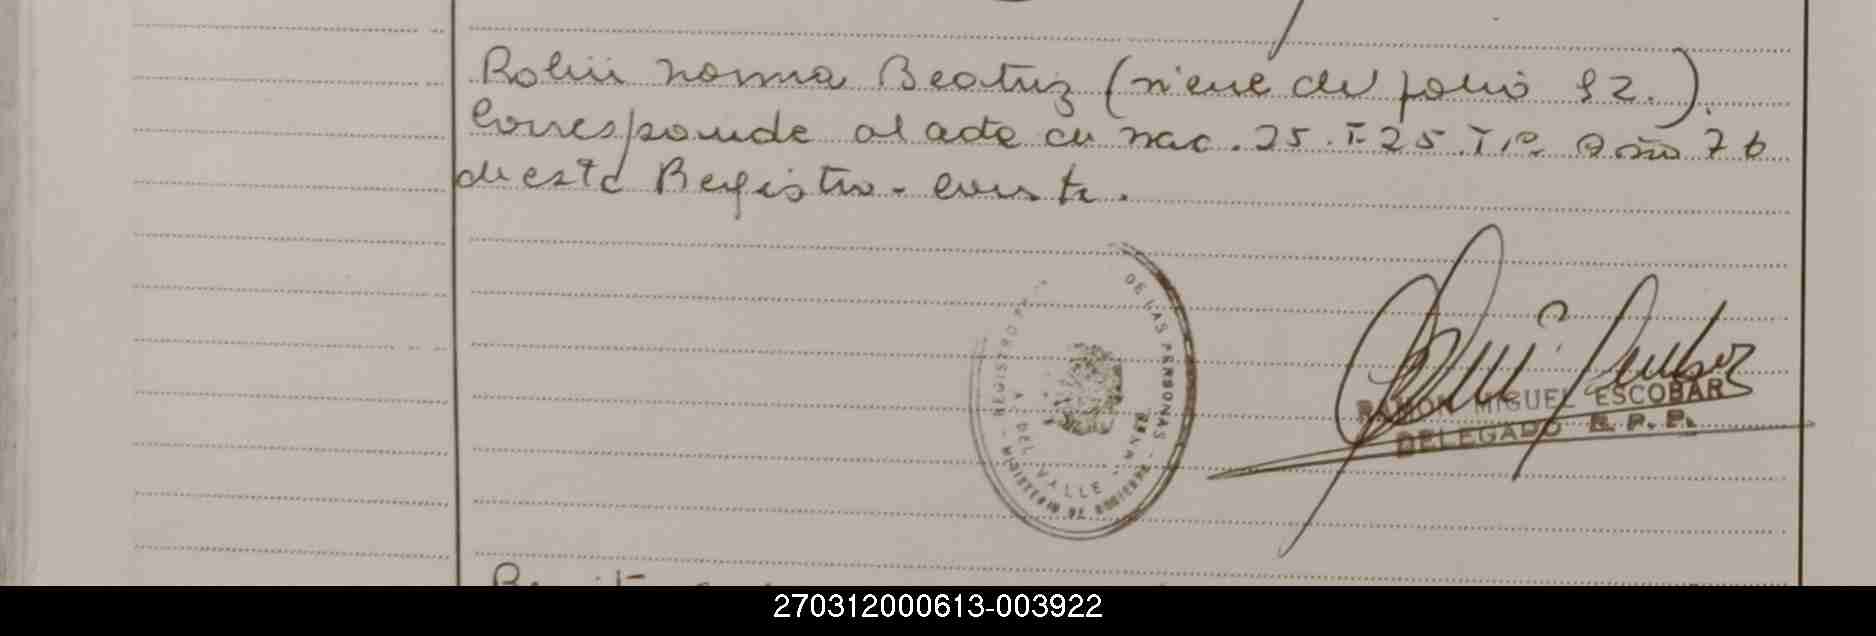 Norma Beatriz (viene del folio 92.).
Corresponde al acta de nac. 25. I-25. Año 76
de este Registro. Conste.
DE LAS PERSONAS
REGISTRO
DEL VALLE
RAMON MIGUEL ESCOBAR
DELEGADO R. P. P.
270312000613-003922